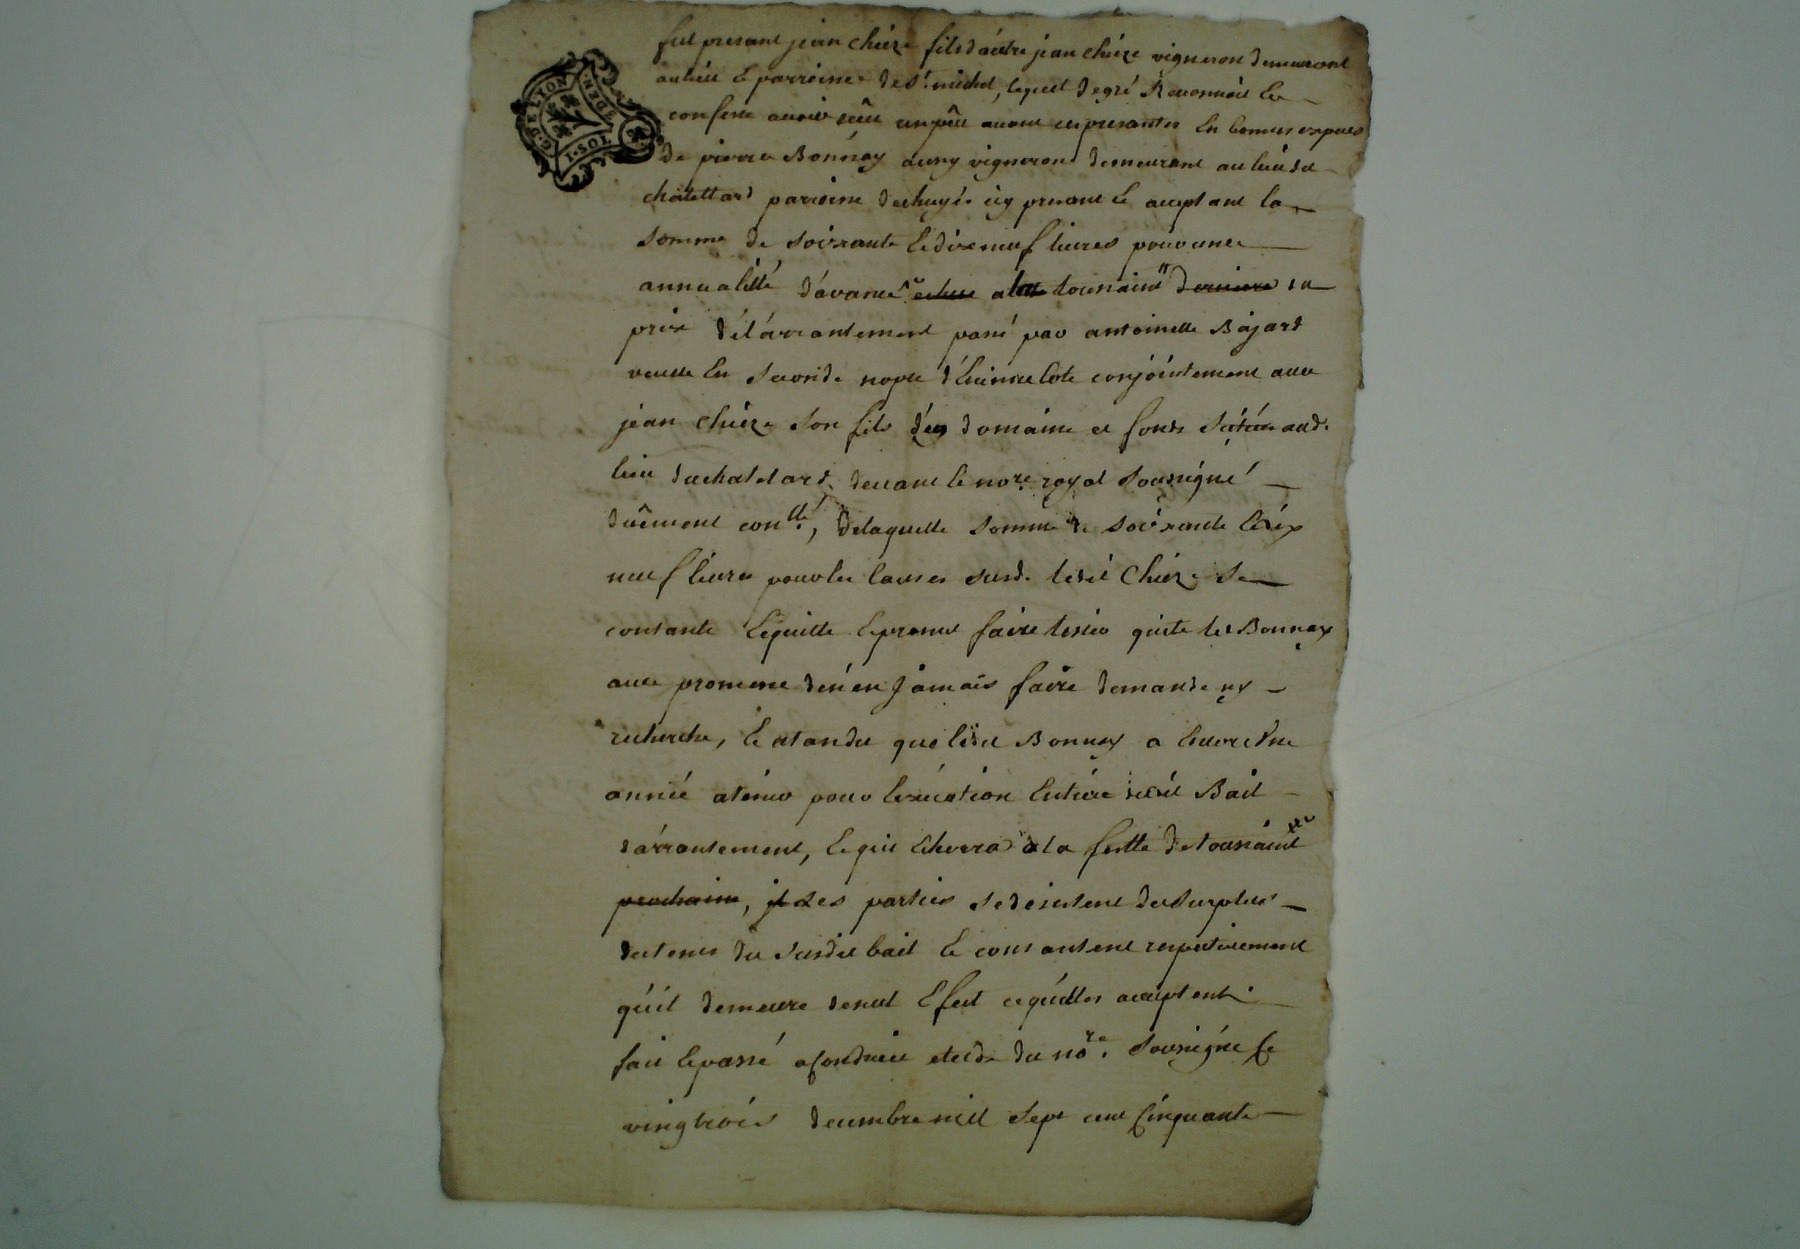 G. DE LYON
I·SOL
fut presant jean chièze fils d'autre jean chièze vigneron demeurant
au lieu & parroisse de St. michel, lequel de gré Reconnoit &
confesse avoir reçu un peu avant ces presantes En bonnes espèces
de pierre Bonnay aussy vigneron demeurant au lieu du
châlettard parroisse icy presant & aceptant la
somme de soixante & dix neuf livres pour une
annualitté d'avance echue a la toussaint derniere du
prix d'él'arrantement passé par antoinette Bajard
veuve En seconde nopce conjointement avec
jean chièze son fils des domaine et fonds situés aud.
lieu du chatelard devant le nore. royal soussigné
duêment conllé, delaquelle somme de soixante & dix
neuf livres pour les causes susd. ledit chièze se
contante & quitte & promet faire tenir quite led Bonnay
avec promesse de n'en jamais faire demande ny
recherche, & atandu que ledit Bonnay a encore une
année a tenir pour l'exécution Entière dudit Bail
d'arrantement, & qui Echerra a la feste de toussaint
prochaine, il Les parties se desistent du surplus
du tems du susdit bail & consantent respectivement
qu'il demeure de nul Efect ce qu'elles aceptent.
fait & passé a fondrieu etude du nore. soussigné le
vingtrois decembre mil sept cent Cinquante